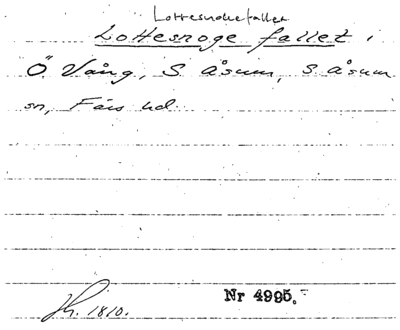 Lottesnokefallet
Lottesnoge fallet i
Ö. Vång, S. Åsum, S. Åsum
sn, Färs hd.
Nr 4995.
1810.